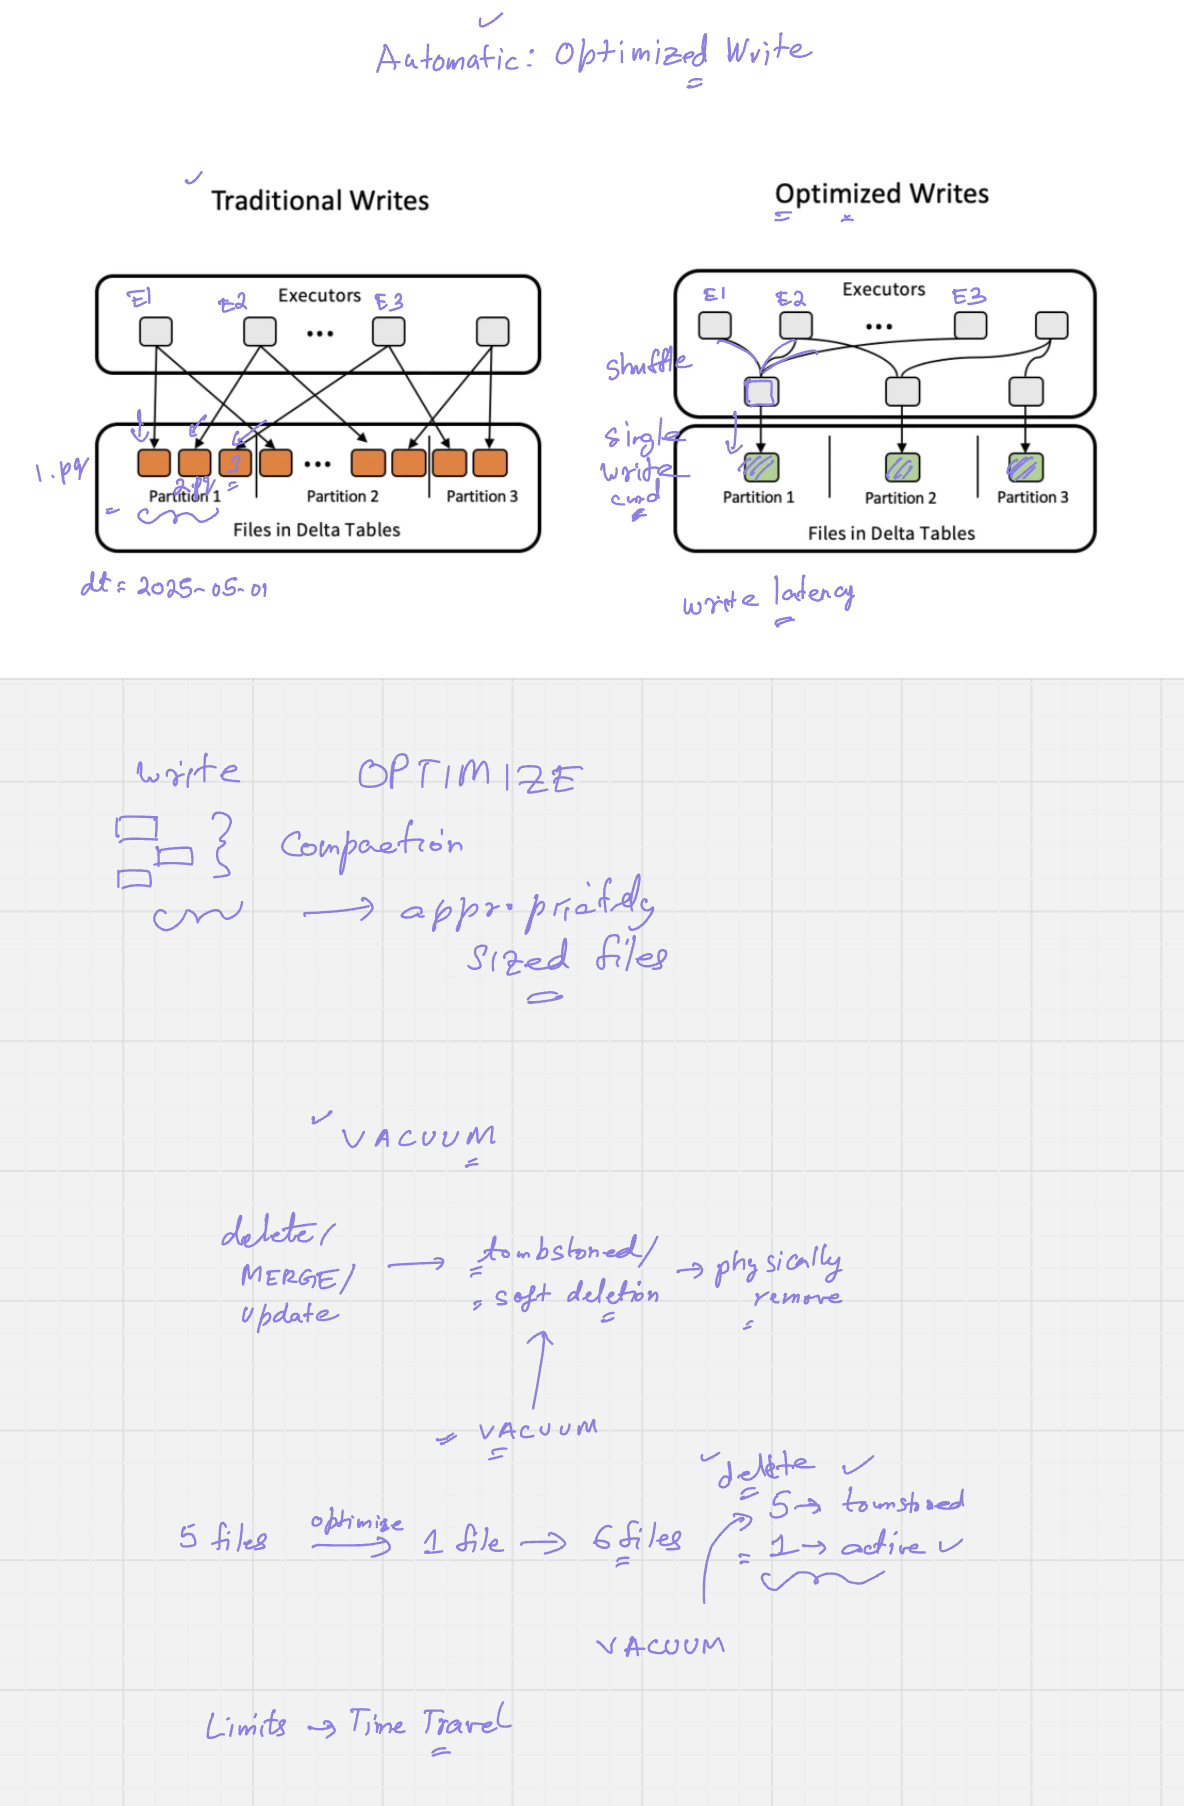 Automatic: Optimized Write
Traditional Writes
E1 E2 Executors E3
1.pq
2.pq 3
Partition 1 Partition 2 Partition 3
Files in Delta Tables
dt = 2025-05-01
Optimized Writes
E1 E2 Executors E3
shuffle
single
write
cmd
Partition 1 Partition 2 Partition 3
Files in Delta Tables
write latency
write OPTIMIZE
Compaction
sized files
VACUUM
delete/
MERGE/
update
tombstoned/
soft deletion
physically
remove
VACUUM
delete
5 files optimize 1 file 6 files
5 → 
1 → active
VACUUM
Limits → Time Travel